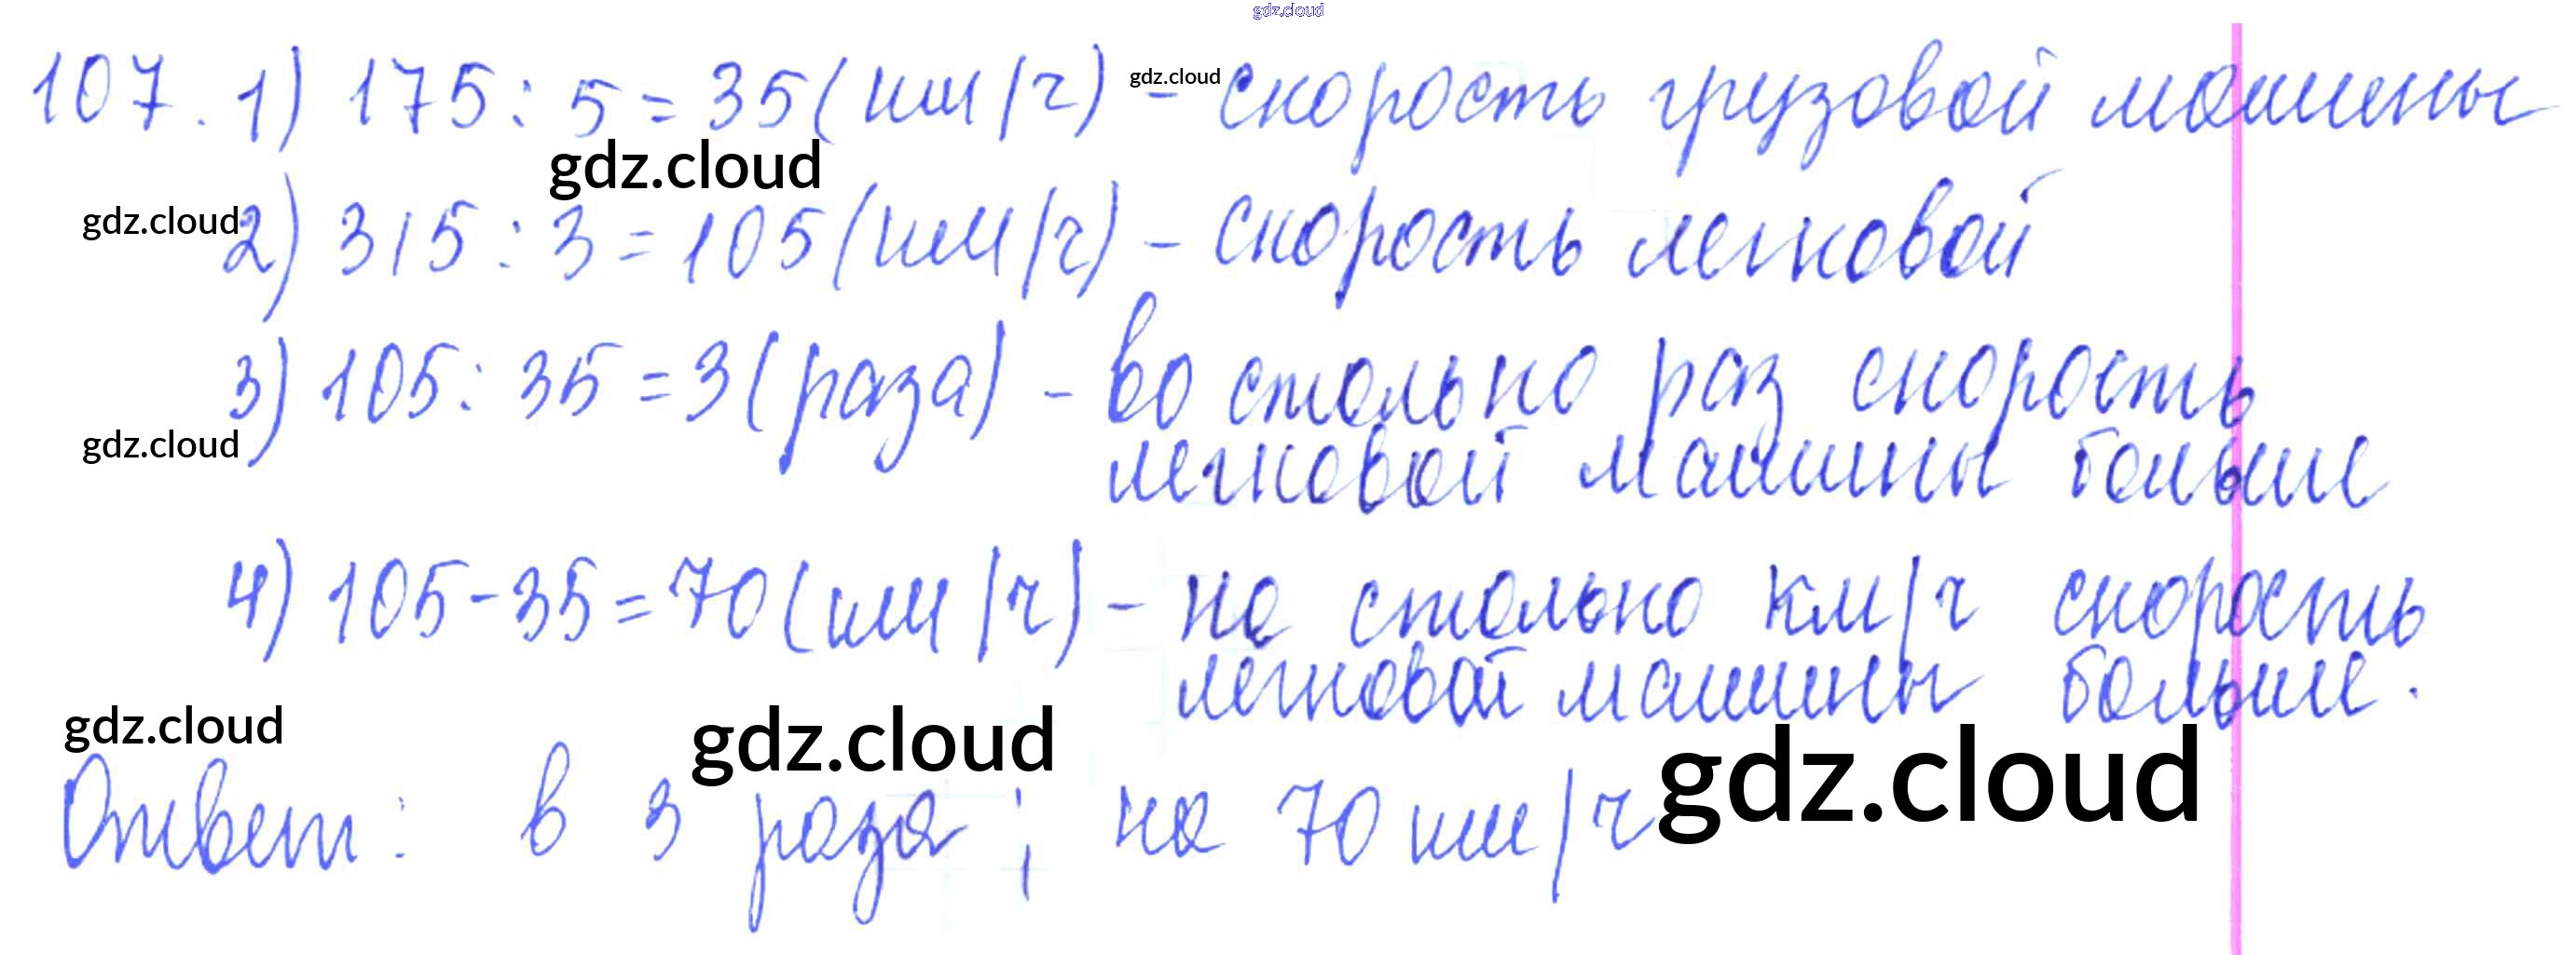 gdz.cloud
107. 1) 175 : 5 = 35 (км/ч) - скорость грузовой машины
gdz.cloud
gdz.cloud
2) 315 : 3 = 105 (км/ч) - скорость легковой
gdz.cloud
3) 105 : 35 = 3 (раза) - во столько раз скорость
легковой машины больше
gdz.cloud
4) 105 - 35 = 70 (км/ч) - на столько км/ч скорость
легковой машины больше.
gdz.cloud
gdz.cloud
gdz.cloud
Ответ: в 3 раза; на 70 км/ч